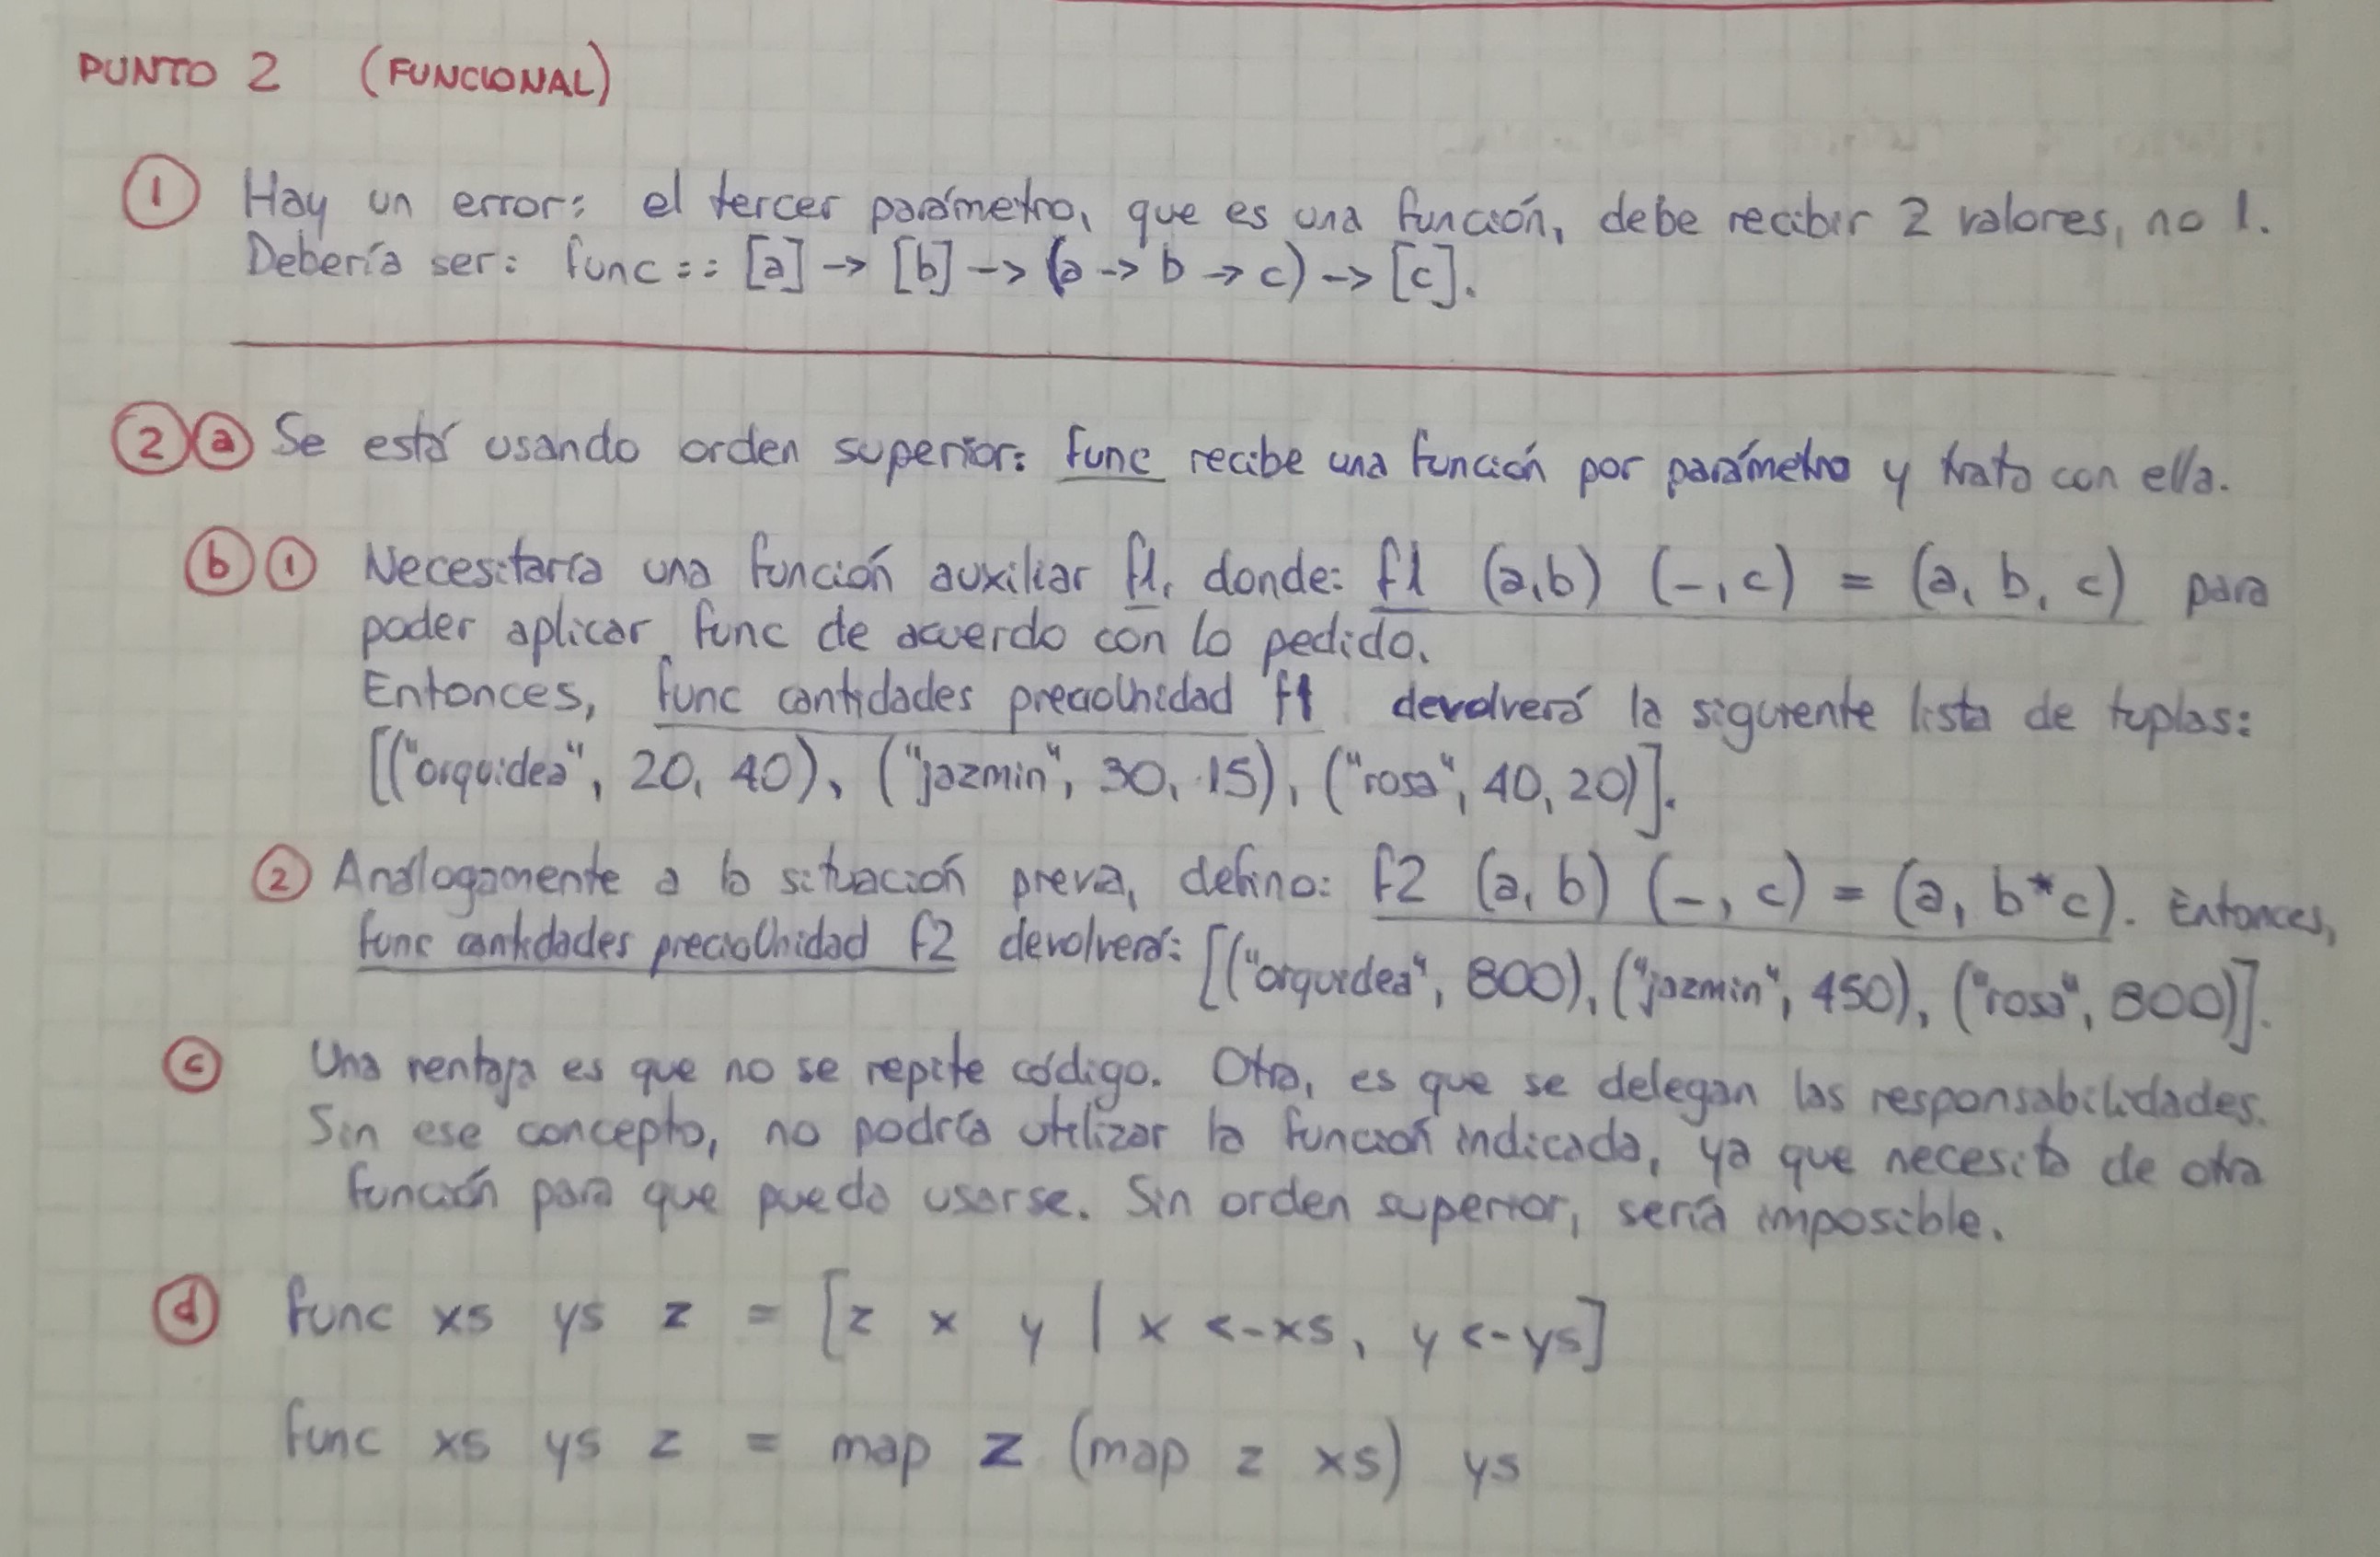 PUNTO 2 (FUNCIONAL)
① Hay un error: el tercer parámetro, que es una función, debe recibir 2 valores, no 1.
Debería ser: func :: [a] -> [b] -> (a -> b -> c) -> [c].
② ⓐ Se está usando orden superior: func recibe una función por parámetro y trata con ella.
ⓑ ① Necesitaría una función auxiliar f1, donde: f1 (a,b) (_,c) = (a, b, c) para
poder aplicar func de acuerdo con lo pedido.
Entonces, func cantidades precioUnidad f1 devolverá la siguiente lista de tuplas:
[("orquidea", 20, 40), ("jazmin", 30, 15), ("rosa", 40, 20)].
② Análogamente a la situación previa, defino: f2 (a, b) (_, c) = (a, b*c). Entonces,
func cantidades precioUnidad f2 devolverá: [("orquidea", 800), ("jazmin", 450), ("rosa", 800)].
ⓒ Una ventaja es que no se repite código. Otra, es que se delegan las responsabilidades.
Sin ese concepto, no podría utilizar la función indicada, ya que necesita de otra
función para que pueda usarse. Sin orden superior, sería imposible.
ⓓ func xs ys z = [z x y | x <- xs, y <- ys]
func xs ys z = map z (map z xs) ys